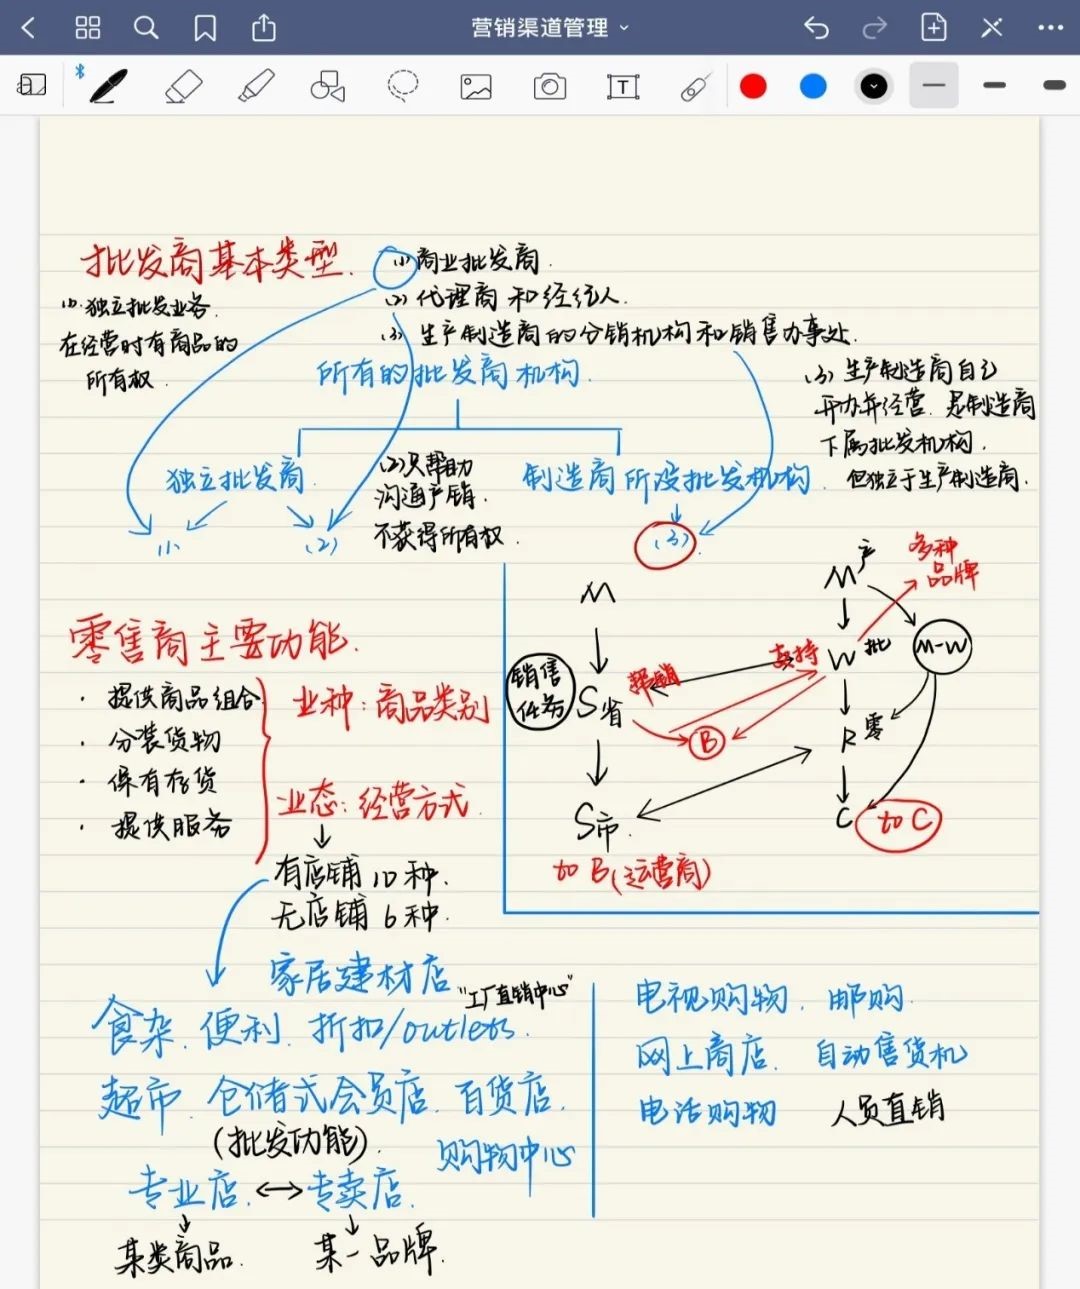 营销渠道管理
T
批发商基本类型.
(1) 商业批发商.
(2) 代理商和经纪人.
(3) 生产制造商的分销机构和销售办事处.
(1) 独立批发业务.
在经营时有商品的
所有权.
所有的批发商机构.
(3) 生产制造商自己
开办并经营. 是制造商
下属批发机构.
但独立于生产制造商.
独立批发商.
(2) 只帮助
沟通产销.
不获得所有权.
制造商所设批发机构.
(1)
(2)
(3).
M
S省
S市.
销售
任务
to B(运营商)
M产
W批
R零
C
M-W
多种
品牌
B
to C
零售商主要功能.
· 提供商品组合
· 分装货物
· 保有存货
· 提供服务
业种: 商品类别
业态: 经营方式.
有店铺10种.
无店铺6种.
家居建材店
"工厂直销中心"
食杂. 便利. 折扣/outlets.
超市. 仓储式会员店. 百货店.
(批发功能).
购物中心
专业店. ↔ 专卖店.
某类商品.
某一品牌.
电视购物. 邮购.
网上商店. 自动售货机
电话购物 人员直销